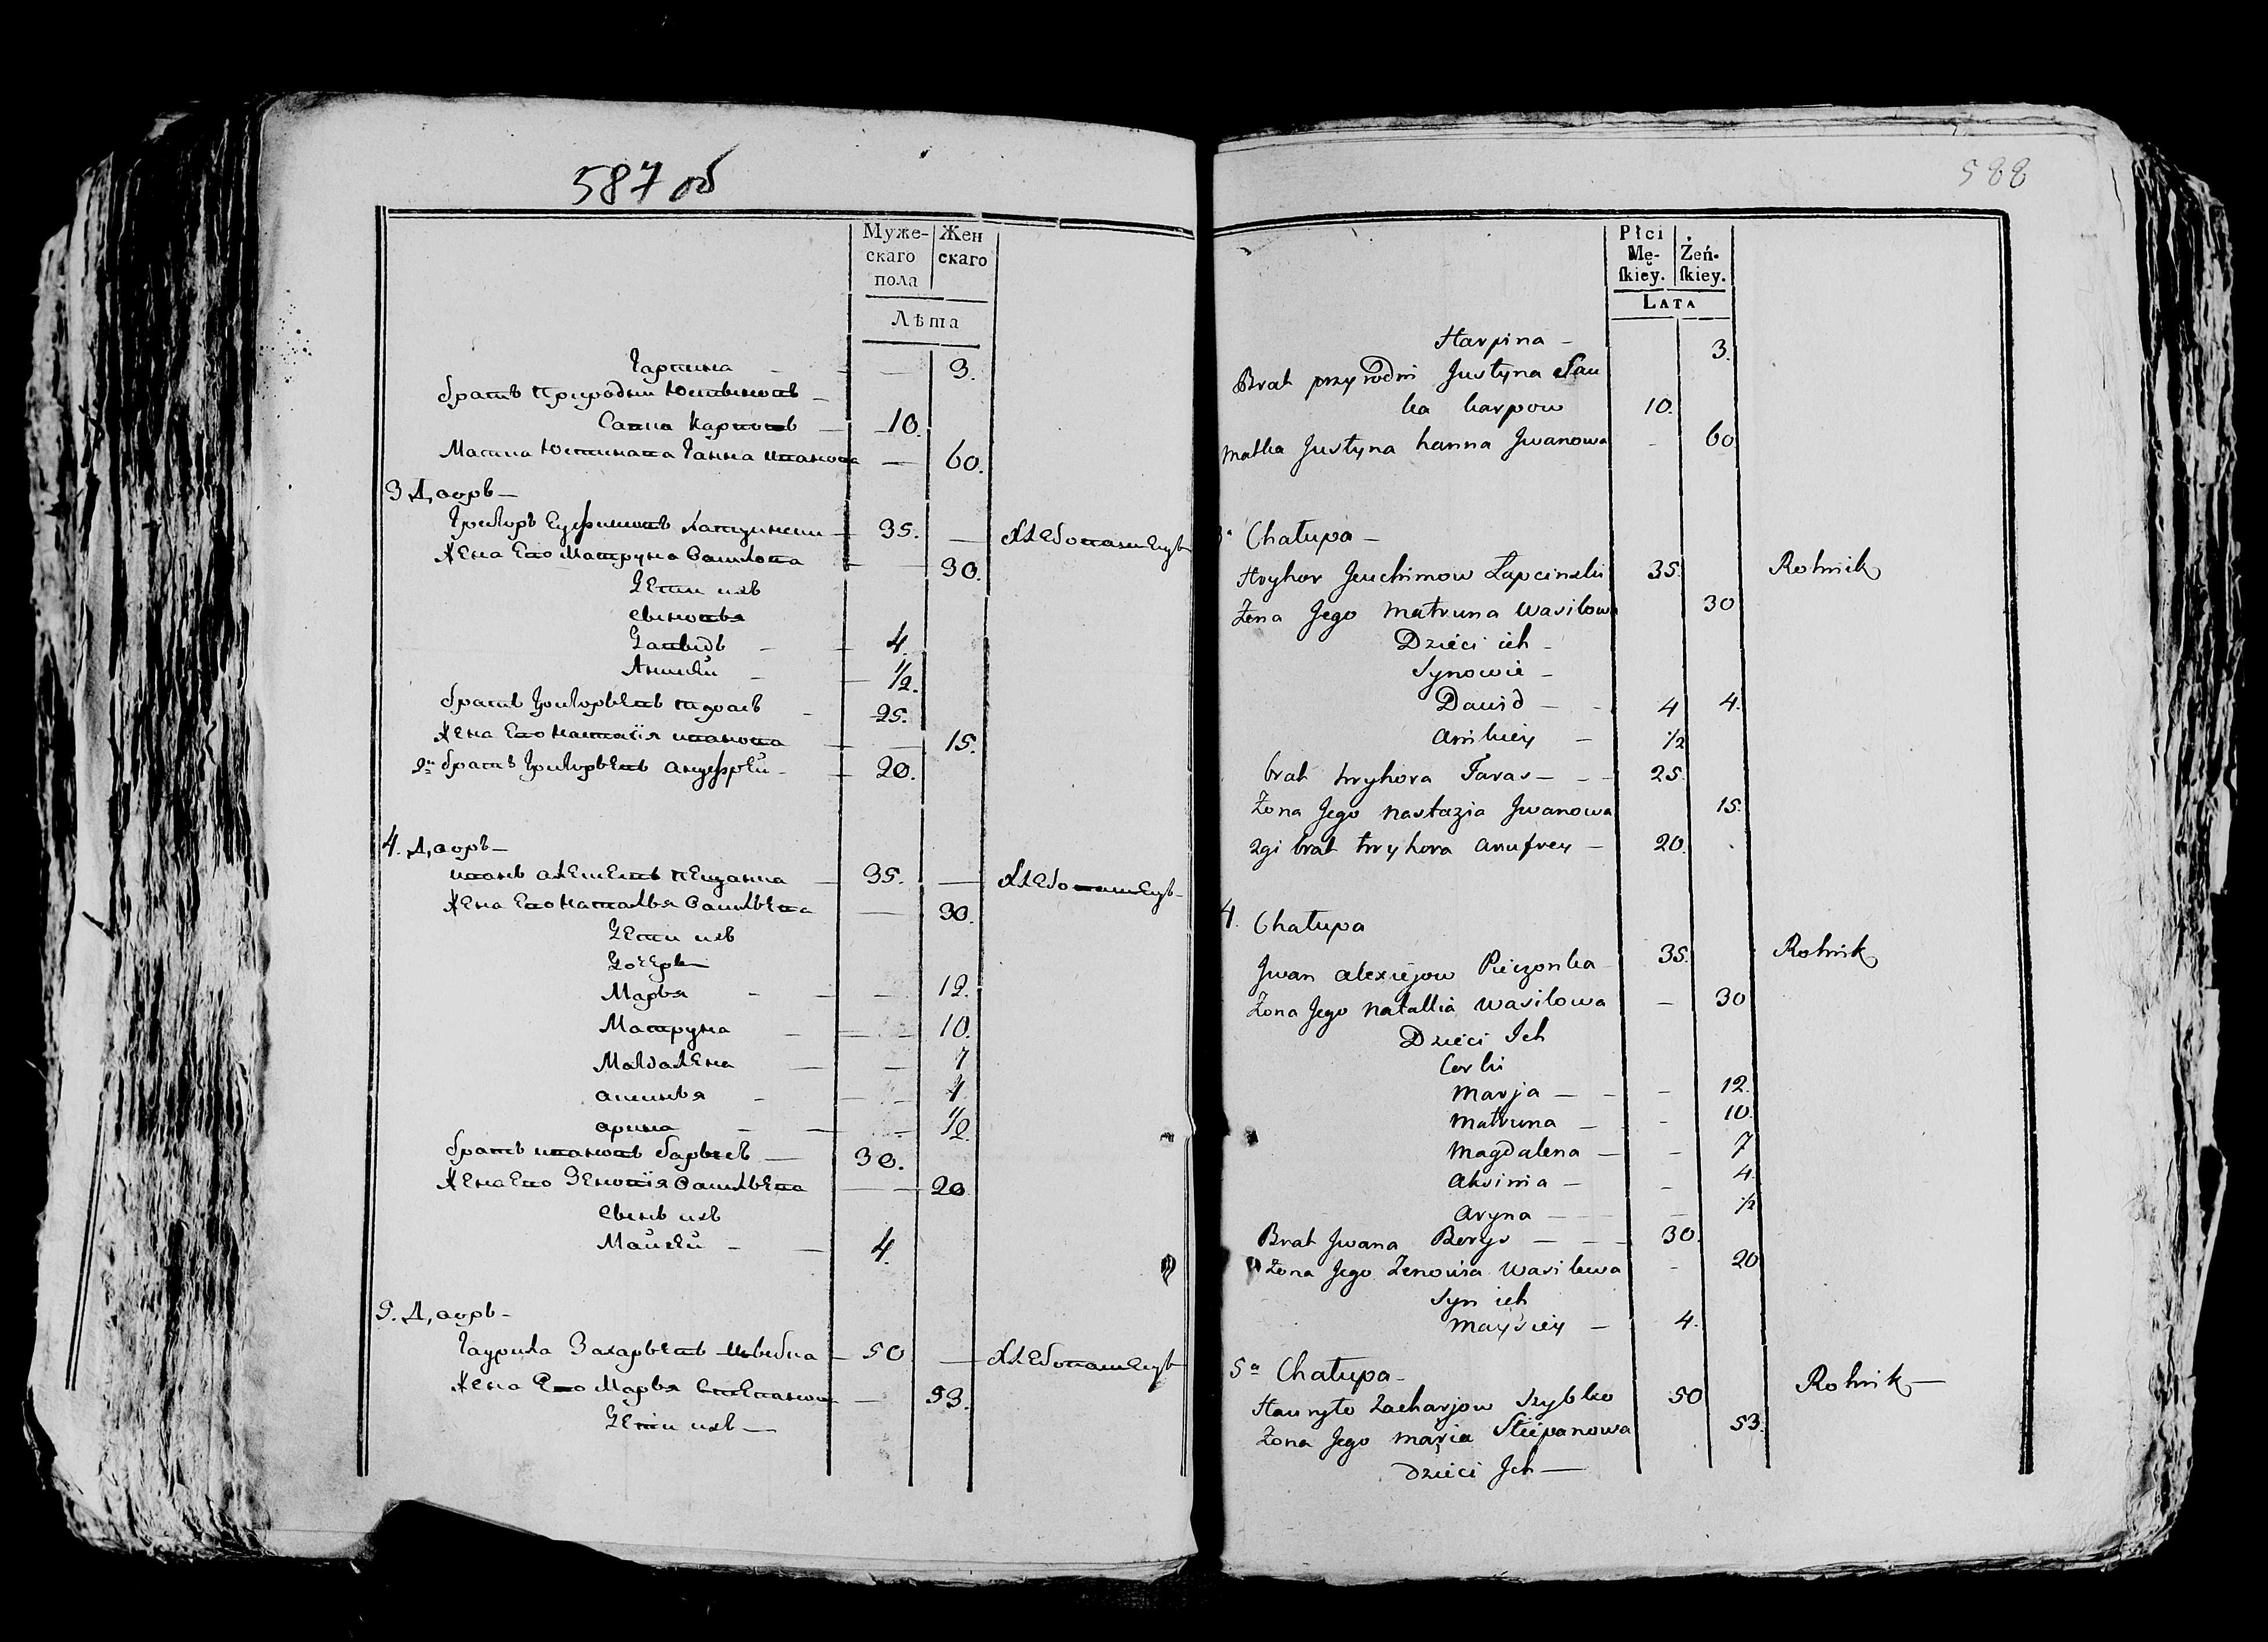 587 об
Муже- Жен
скаго скаго
пола
Лѣта
Гарпина - 3.
братъ природный Юстыновъ -
Савка Карповъ - 10.
Матка Юстинова Ганна иванова - 60.
3 Дворъ -
Григоръ Еуфимовъ Лапцински - 35. - Хлебопашецъ
Жена Его Матруна Василова - 30.
Дети ихъ
Сыновья
Давыдъ - 4.
Аникей - 1/2.
братъ Григорьевъ Тарасъ - 25.
Жена Его Настасія иванова - 15.
2й братъ Григорьевъ ануфрей - 20.
4. Дворъ -
иванъ алексеевъ Печанка - 35. - Хлебопашецъ
Жена Его Наталья Васильева - 30.
Дети ихъ
Дочеры
Марья - 12.
Матруна - 10.
Магдалена - 7
аксинья - 4
арина - 1/2.
братъ ивановъ барысъ - 30.
Жена Его Зеновія Васильева - 20
Сынъ ихъ
Майсей - 4.
5. Дворъ -
Гаурила Захарьевъ Шыбка - 50 - Хлебопашецъ
Жена Его Марья Степанова - 53.
Дети ихъ -
588
Płci
Mę- Żeń-
ſkiey. ſkiey.
LATA
Harpina - 3.
Brat przyrodni Justyna Sau
ka karpow 10.
matka Justyna hanna Jwanowa - 60
3a Chałupa -
Hryhor Jeuchimow Łapcinski 35. Rolnik
Żena Jego matruna wasilowa 30
Dzieci ich -
Synowie -
Dawid - - 4 4.
anikiey - 1/2
brat hryhora Taras - - 25.
Żona Jego nastazia Jwanowa 15.
2gi brat hryhora anufrey - 20.
4. Chałupa
Jwan alexiejow Pieczonka 35. Rolnik
Żona Jego natallia wasilowa - 30
Dzieci Ich
Corki
marja - - - 12.
matruna - - 10.
magdalena - - 7
aksinia - - 4.
aryna - - - 1/2
Brat Jwana Borys - - - 30.
Żona Jego Zenowia wasilewa - 20
Syn ich
maysiey - 4.
5a Chałupa -
Hauryło Zacharjow Szybko 50 Rolnik -
Żona Jego maria Stiepanowa 53.
Dzieci Jch -